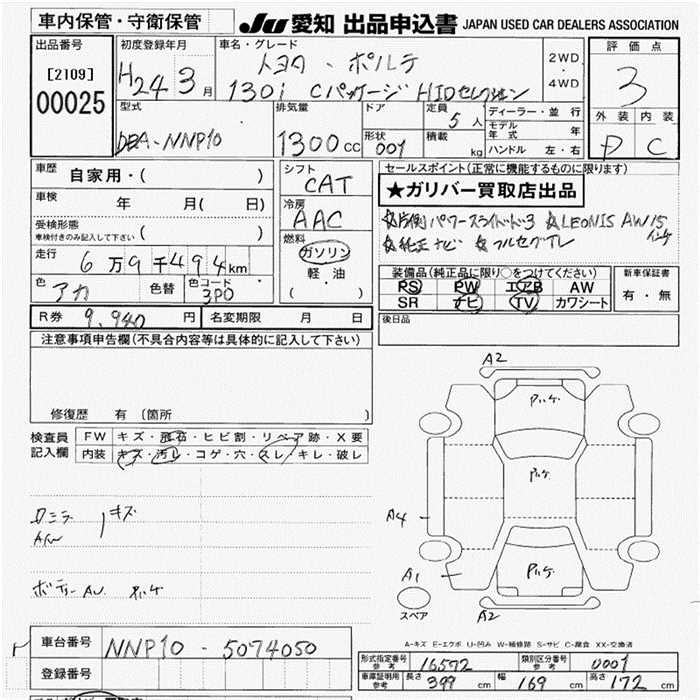 車内保管・守衛保管
JU 愛知 出品申込書 JAPAN USED CAR DEALERS ASSOCIATION
出品番号
[2109]
00025
初度登録年月
H24 3月
車名・グレード
トヨタ・ポルテ
130i Cパッケージ HIDセレクション
2WD・4WD
評価点
3
外装 内装
D C
型式
DBA-NNP10
排気量
1300cc
ドア
形状
001
定員
5人
積載 kg
ディーラー・並行
モデル年式 年
ハンドル 左・右
車歴 自家用・( )
車検 年 月( 日)
受検形態
車検付きのみ記入して下さい ( )
走行 6万9千494km
色 アカ 色替 色コード 3P0
シフト
CAT
冷房
AAC
燃料
ガソリン
軽・油
( )
セールスポイント(正常に機能するものに限ります)
★ガリバー買取店出品
☆両側パワースライドドア ☆LEONIS AW15インチ
☆純正ナビ ☆フルセグTV
装備品(純正品に限り○をつけてください)
PS PW エアB AW
SR ナビ TV カワシート
新車保証書
有・無
R券 9,940円 名変期限 月 日
後日品
注意事項申告欄(不具合内容等は具体的に記入して下さい)
修復歴 有 (箇所 )
検査員記入欄
FW キズ・飛石・ヒビ割・リペア跡・X要
内装 キズ・汚レ・コゲ・穴・スレ・キレ・破レ
キズ
A/W
A2
A4
A1
A2
スペア
A-キズ E-エクボ U-凹み W-補修跡 S-サビ C-腐食 XX-交換済
車台番号 NNP10-5074050
登録番号
形式指定番号 参考 16572 類別区分番号 参考 0001
車庫証明用 参考 長さ 399cm 幅 169cm 高さ 172cm